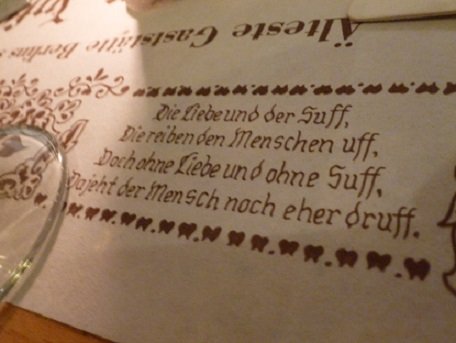 Älteste Gaststätte Berlins
Die Liebe und der Suff,
Die reiben den Menschen uff,
Doch ohne Liebe und ohne Suff,
Dajeht der Mensch noch eher druff.